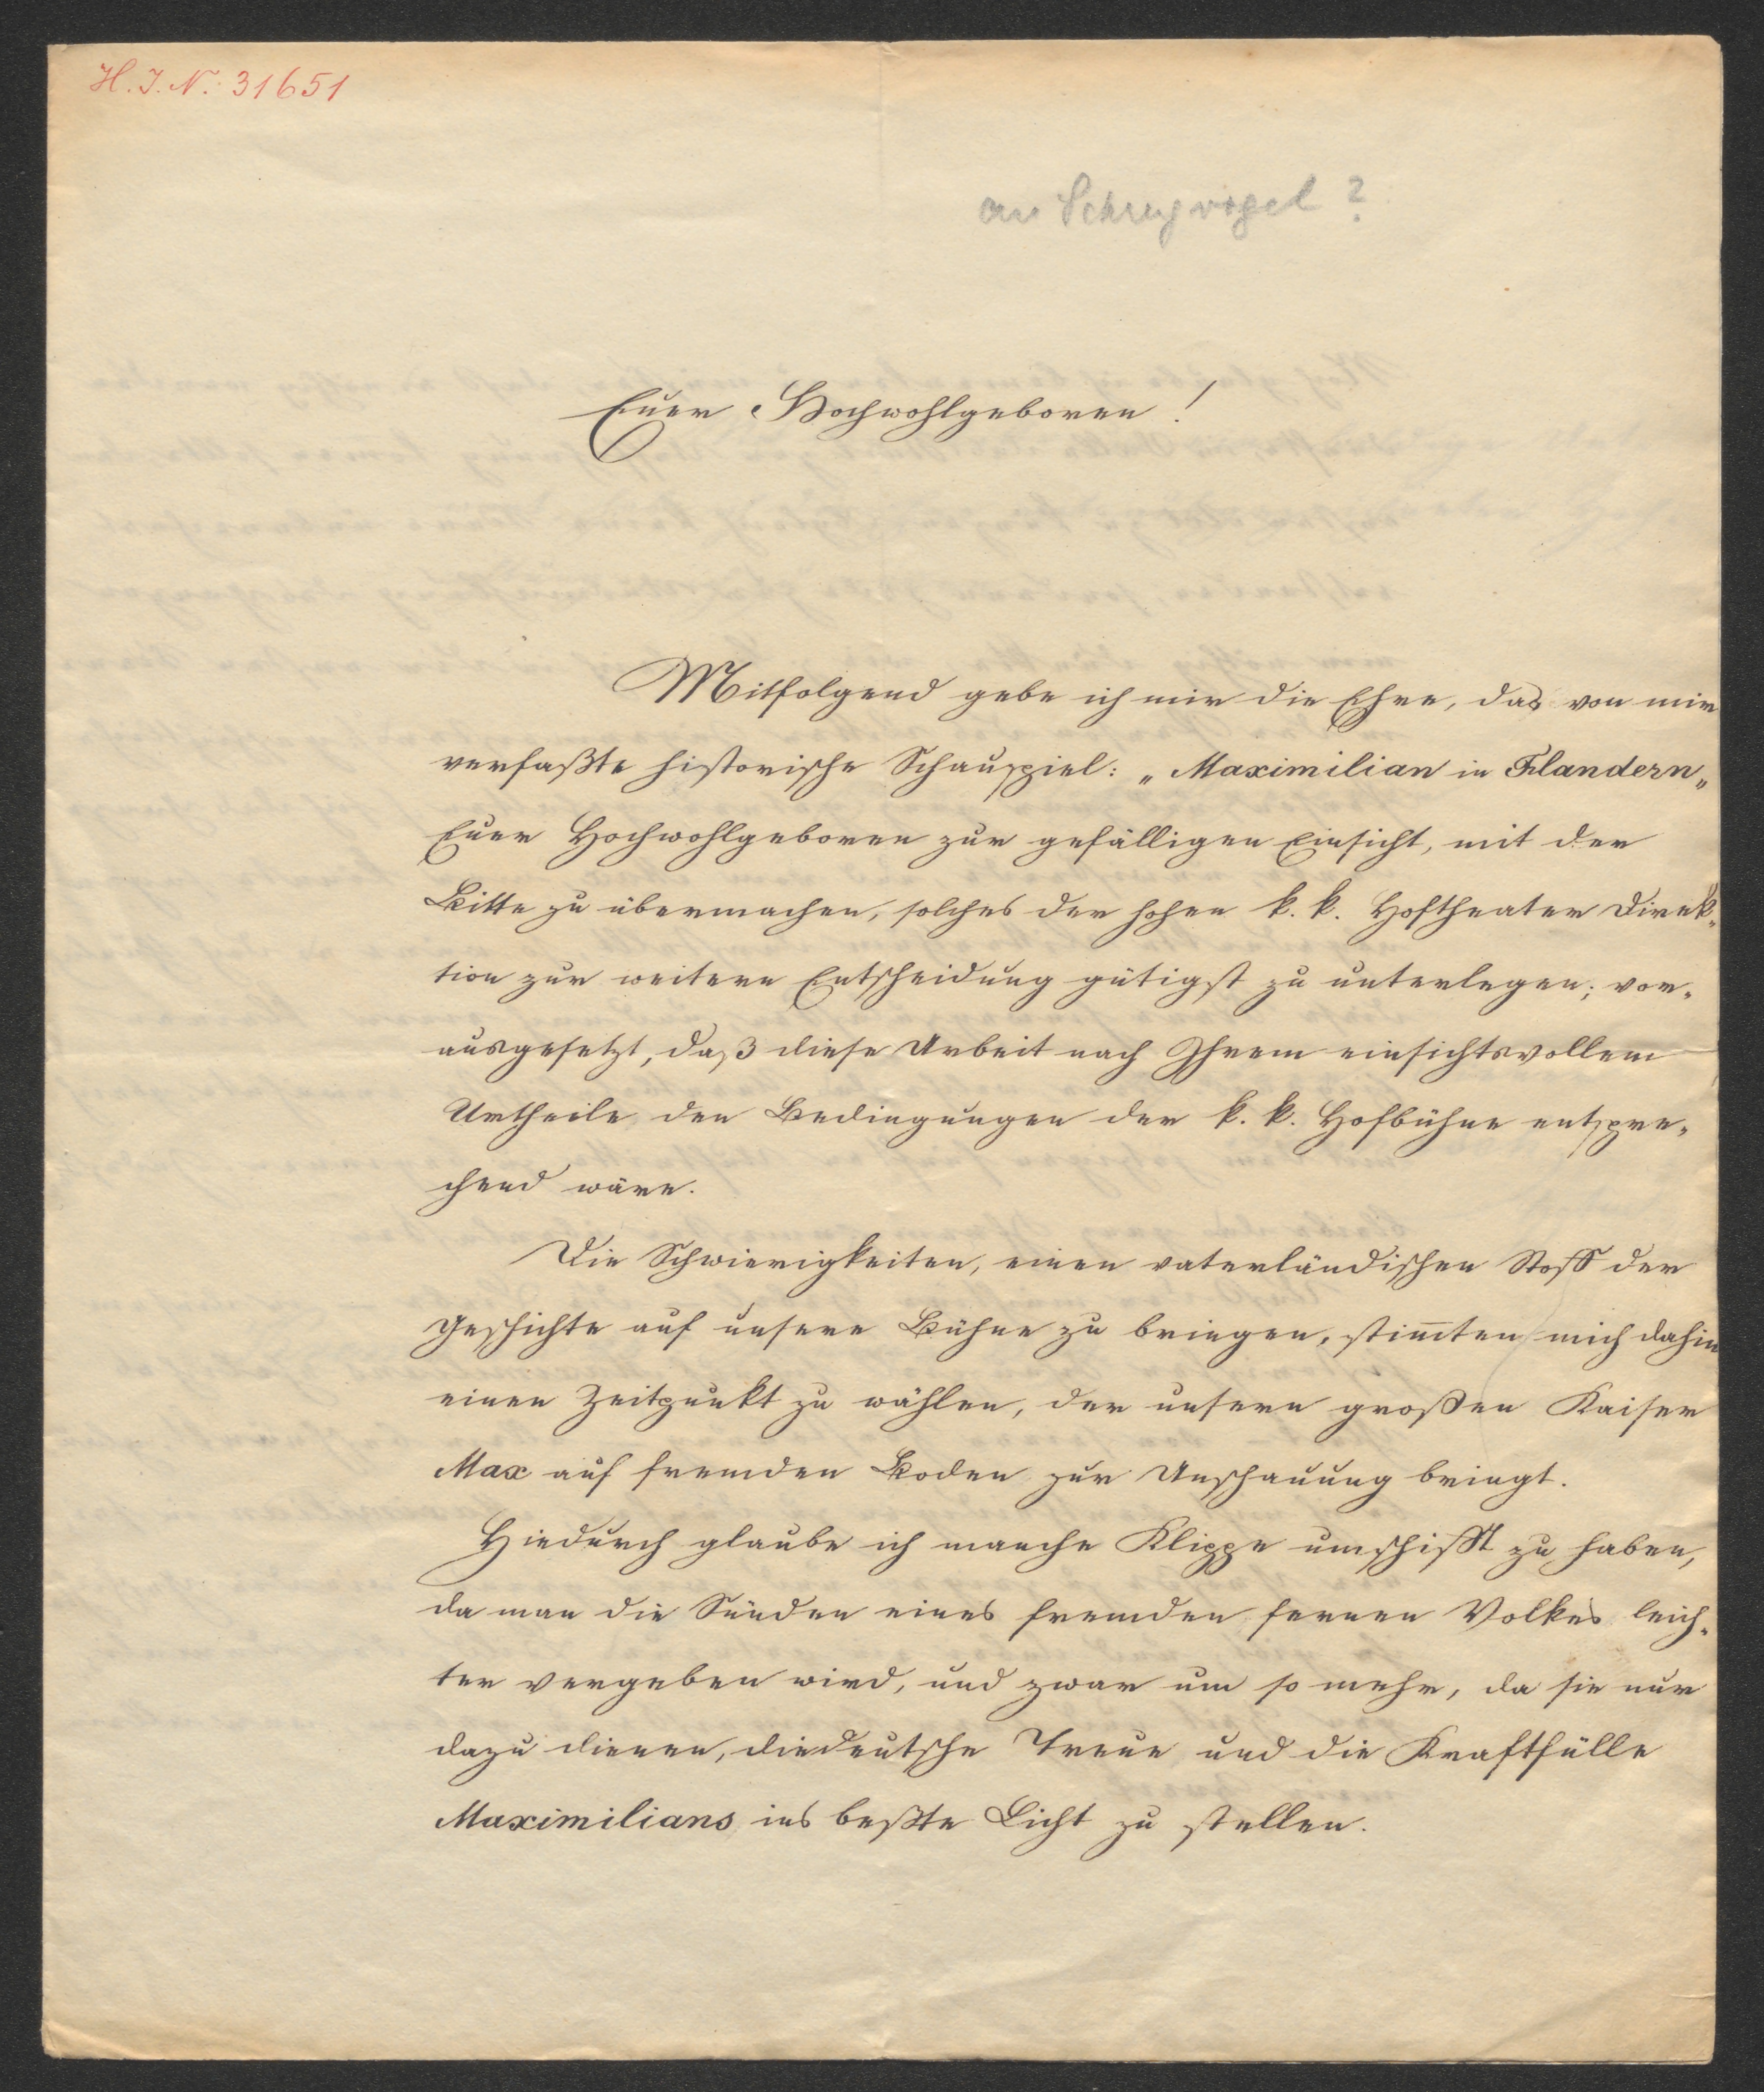 H. I. N.: 31651
an Schreyvogel?
Euer Hochwohlgeboren!
Mitfolgend gebe ich mir die Ehre, das von mir
verfaßte historische Schauspiel: „Maximilian in Flandern„
Euer Hochwohlgeboren zur gefälligen Einsicht, mit der
Bitte zu übermachen, solches der hohen k. k. Hoftheater Direk-
tion zur weitern Entscheidung gütigst zu unterlegen; vor-
ausgesetzt, daß diese Arbeit nach Ihrem einsichtsvollem
Urtheile den Bedingungen der k. k. Hofbühne entspre-
chend wäre.
Die Schwierigkeiten, einen vaterländischen Stoff der
Geschichte auf unsere Bühne zu bringen, stim̄ten mich dahin
einen Zeitpunkt zu wählen, der unsern großen Kaiser
Max auf fremden Boden zur Anschauung bringt.
Hiedurch glaube ich manche Klippe umschifft zu haben,
da man die Sünden eines fremden fernen Volkes leich-
ter vergeben wird, und zwar um so mehr, da sie nur
dazu dienen, die deutsche Treue und die Kraftfülle
Maximilians ins beßte Licht zu stellen.